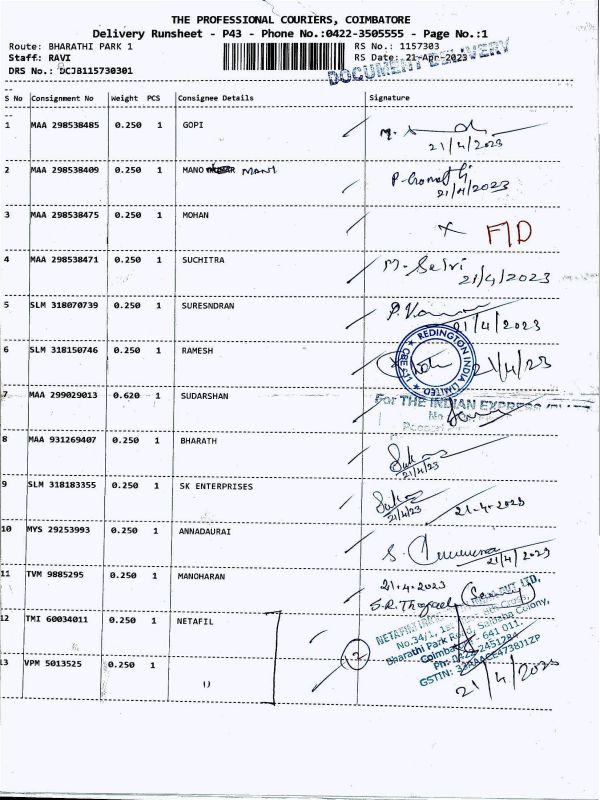 THE PROFESSIONAL COURIERS, COIMBATORE
Delivery Runsheet - P43 - Phone No.:0422-3505555 - Page No.:1
Route: BHARATHI PARK 1
RS No.: 1157303
Staff: RAVI
RS Date: 21-Apr-2023
DRS No.: DCJB115730301
DOCUMENT DELIVERY
S No Consignment No Weight PCS Consignee Details Signature
1 MAA 298538485 0.250 1 GOPI
21/4/2023
2 MAA 298538409 0.250 1 MANO MANI
21/4/2023
3 MAA 298538475 0.250 1 MOHAN
x F/D
4 MAA 298538471 0.250 1 SUCHITRA
M. Selvi
21/4/2023
5 SLM 318070739 0.250 1 SURESNDRAN
21/4/2023
6 SLM 318150746 0.250 1 RAMESH
REDINGTON INDIA LIMITED
21/4/23
7 MAA 299029013 0.620 1 SUDARSHAN
For THE INDIAN EXPRESS
8 MAA 931269407 0.250 1 BHARATH
21/4/23
9 SLM 318183355 0.250 1 SK ENTERPRISES
21/4/23 21-4-2023
10 MYS 29253993 0.250 1 ANNADAURAI
21/4/2023
11 TVM 9885295 0.250 1 MANOHARAN
21-4-2023
12 TMI 60034011 0.250 1 NETAFIL
No.34/1, 8th Cross,
Bharathi Park Road, Saibaba Colony,
Coimbatore - 641 011
Ph: 0422-2451284
GSTIN:
13 VPM 5013525 0.250 1 "
2
21/4/2023